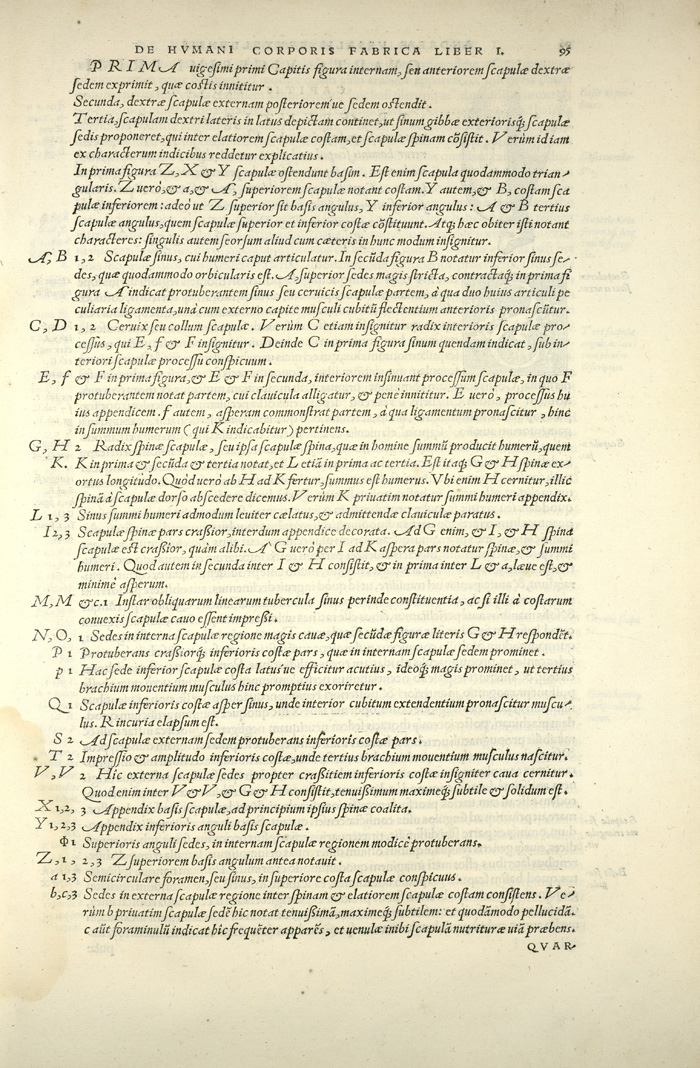 DE HVMANI CORPORIS FABRICA LIBER I. 95
PRIMA uigesimi primi Capitis figura internam, seu anteriorem scapulæ dextræ
sedem exprimit, quæ costis innititur.
Secunda, dextræ scapulæ externam posterioremúe sedem ostendit.
Tertia, scapulam dextri lateris in latus depictam continet, ut sinum gibbæ exteriorisq́; scapulæ
sedis proponeret, qui inter elatiorem scapulæ costam, et scapulæ spinam cõsistit. Verùm id iam
ex characterum indicibus reddetur explicatius.
In prima figura Z, X & Y scapulæ ostendunt basim. Est enim scapula quodammodo trian-
gularis. Z uerò, & a, & A, superiorem scapulæ notant costam. Y autem, & B, costam sca
pulæ inferiorem: adeò ut Z superior sit basis angulus, Y inferior angulus: A & B tertius
scapulæ angulus, quem scapulæ superior et inferior costæ cõstituunt. Atq́; hæc obiter isti notant
characteres: singulis autem seorsum aliud cum cæteris in hunc modum insignitur.
A, B 1, 2 Scapulæ sinus, cui humeri caput articulatur. In secũda figura B notatur inferior sinus se-
des, quæ quodammodo orbicularis est. A, superior sedes magis stricta, contractaq́; in prima fi
gura A indicat protuberantem sinus seu ceruicis scapulæ partem, à qua duo huius articuli pe
culiaria ligamenta, unà cum externo capite musculi cubitũ flectentium anterioris pronascũtur.
C, D 1, 2 Ceruix seu collum scapulæ. Verùm C etiam insignitur radix interioris scapulæ pro-
cessus, qui E, f & F insignitur. Deinde C in prima figura sinum quendam indicat, sub in-
teriori scapulæ processu conspicuum.
E, f & F in prima figura, & E & F in secunda, interiorem insinuant processum scapulæ, in quo F
protuberantem notat partem, cui clauicula alligatur, & penè innititur. E uerò, processus hu
ius appendicem. f autem, asperam commonstrat partem, à qua ligamentum pronascitur, hinc
in summum humerum (qui K indicabitur) pertinens.
G, H 2 Radix spinæ scapulæ, seu ipsa scapulæ spina, quæ in homine summũ producit humerũ, quem
K. K in prima & secũda & tertia notat, et L etiã in prima ac tertia. Est itaq́; G & H spinæ ex-
ortus longitudo. Quod uerò ab H ad K fertur, summus est humerus. Vbi enim H cernitur, illic
spinã à scapulæ dorso abscedere dicemus. Verùm K priuatim notatur summi humeri appendix.
L 1, 3 Sinus summi humeri admodum leuiter cælatus, & admittendæ clauiculæ paratus.
I 2, 3 Scapulæ spinæ pars crassior, interdum appendice decorata. Ad G enim, & I, & H spina
scapulæ est crassior, quàm alibi. A G uerò per I ad K aspera pars notatur spinæ, & summi
humeri. Quod autem in secunda inter I & H consistit, & in prima inter L & a, læue est, &
minimè asperum.
M, M &c. 1 Instar obliquarum linearum tubercula sinus perinde constituentia, ac si illi à costarum
conuexis scapulæ cauo essent impressi.
N, O, 1 Sedes in interna scapulæ regione magis cauæ, quæ secũdæ figuræ literis G & H respondẽt.
P 1 Protuberans crassiorq́; inferioris costæ pars, quæ in internam scapulæ sedem prominet.
p 1 Hac sede inferior scapulæ costa latusúe efficitur acutius, ideoq́; magis prominet, ut tertius
brachium mouentium musculus hinc promptius exoriretur.
Q 1 Scapulæ inferioris costæ asper sinus, unde interior cubitum extendentium pronascitur muscu-
lus. R incuria elapsum est.
S 2 Ad scapulæ externam sedem protuberans inferioris costæ pars.
T 2 Impressio & amplitudo inferioris costæ, unde tertius brachium mouentium musculus nascitur.
V, V 2 Hic externa scapulæ sedes propter crassitiem inferioris costæ insigniter caua cernitur.
Quod enim inter V & V, & G & H consistit, tenuissimum maximeq́; subtile & solidum est.
X 1, 2, 3 Appendix basis scapulæ, ad principium ipsius spinæ coalita.
Y 1, 2, 3 Appendix inferioris anguli basis scapulæ.
Φ 1 Superioris anguli sedes, in internam scapulæ regionem modicè protuberans.
Z, 1, 2, 3 Z superiorem basis angulum antea notauit.
a 1, 3 Semicirculare foramen, seu sinus, in superiore costa scapulæ conspicuus.
b, c, 3 Sedes in externa scapulæ regione inter spinam & elatiorem scapulæ costam consistens. Ve-
rùm b priuatim scapulæ sedẽ hic notat tenuissimã, maximeq́; subtilem: et quodãmodo pellucidã.
c aũt foraminulũ indicat hic frequẽter apparẽs, et uenulæ inibi scapulã nutrituræ uiã præbens.
QVAR-